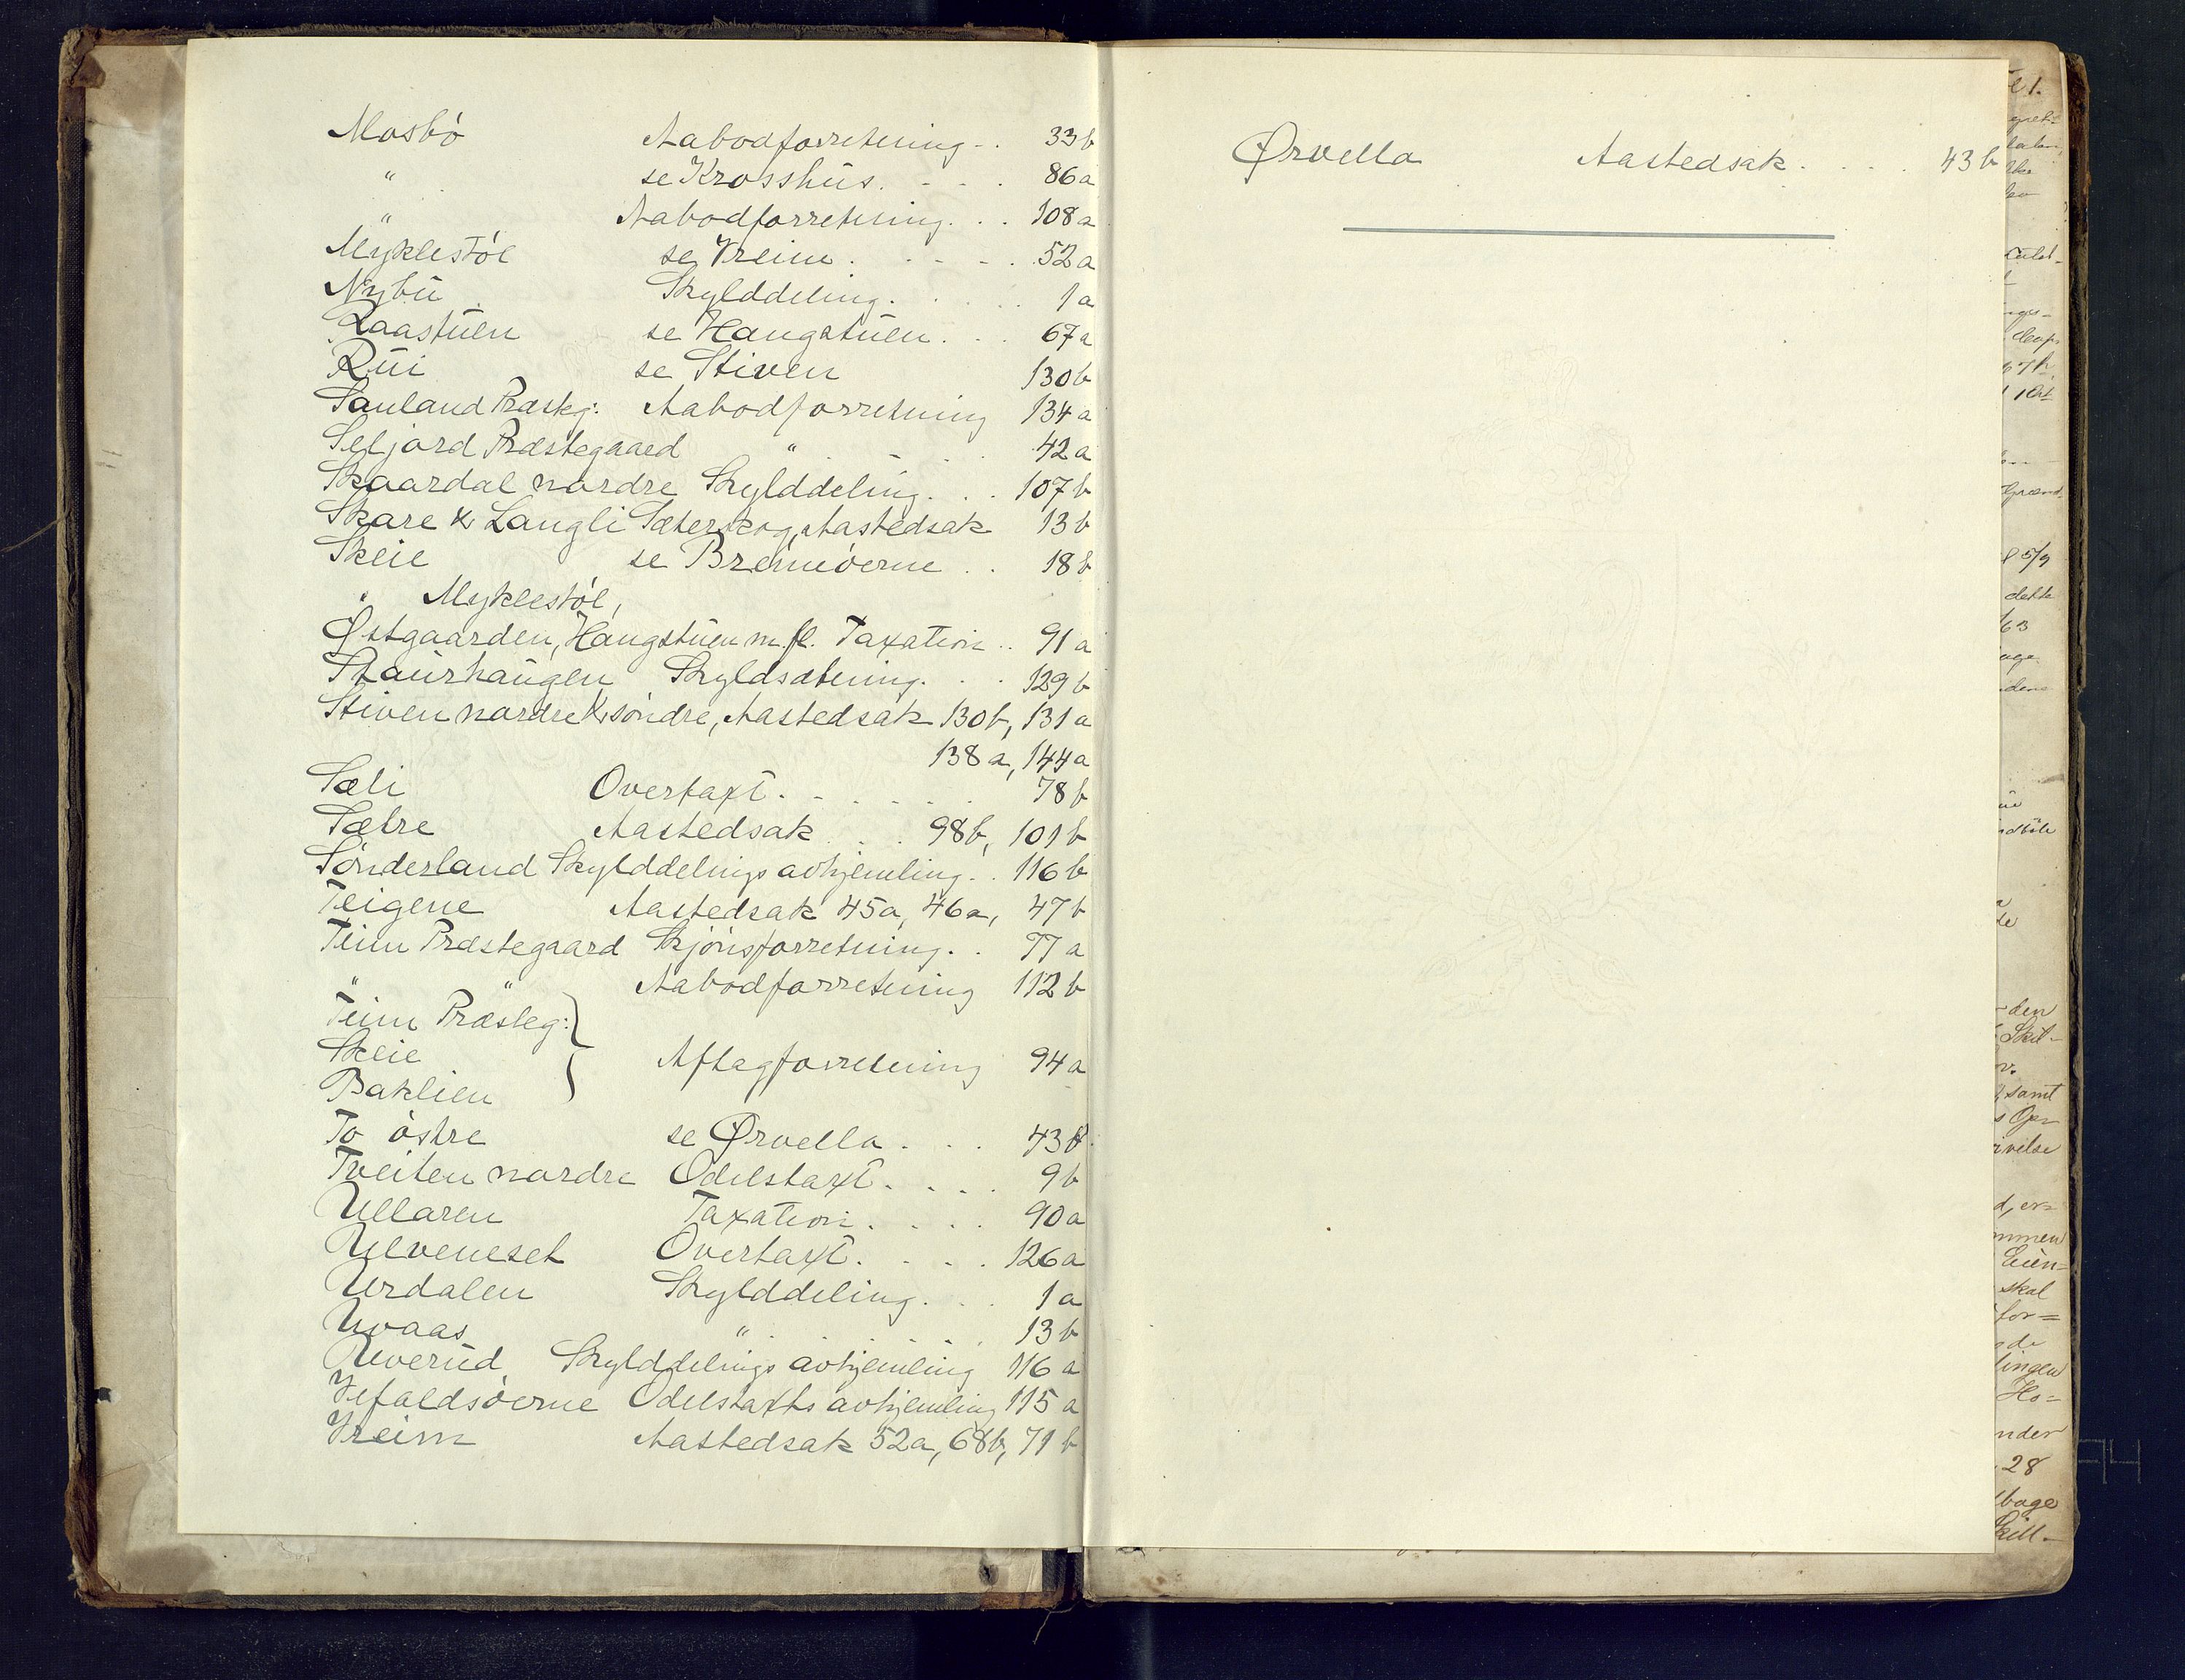 Mosbø Aabodforretning - . 33b
" se Krosshus. - - . 86a
" Aabodforretning. . . 108a
Myklestøl se Vreim . . - - . 52a
Nybu Skylddeling. . . . . 1a
Raastuen se Haugstuen. . . 67a
Rui se Stiven 130b
Sauland Præsteg: Aabodforretning 134a
Seljord Præstegaard " . . . . 42a
Skaardal nordre Skylddeling. . . 107b
Skare & Langli Sæterskog, Aastedsak 13b
Skeie se Bremeøerne . . 18b
" Myklestøl,
Østgaarden, Haugstuen m.fl. Taxation . . 91a
Staurhaugen Skyldsætning. . . 129b
Stiven nordre & søndre, Aastedsak 130b, 131a
138a, 144a
Sæli Overtaxt. . . . . . . 78b
Sætre Aastedsak . . . 98b, 101b
Sønderland Skylddelings avhjemling. . 116b
Teigene Aastedsak 45a, 46a, 47b
Teim Præstegaard Skjønsforretning. . 77a
" " Aabodforretning 112b
Teim Præsteg:
Skeie Aftagforretning 94a
Baklien
To østre se Ørvella . . . 43b
Tveiten nordre Odelstaxt. . . . 9b
Ullaren Taxation. . . . 90a
Ulveneset Overtaxt. . . . 126a
Urdalen Skylddeling. . . 1a
Uvaas " . . . . 13b
Uverud Skylddelings avhjemling 116a
Vefaldsøerne Odelstaxts avhjemling 115a
Vreim Aastedsak 52a, 68b, 71b
Ørvella Aastedsak. . . . 43b